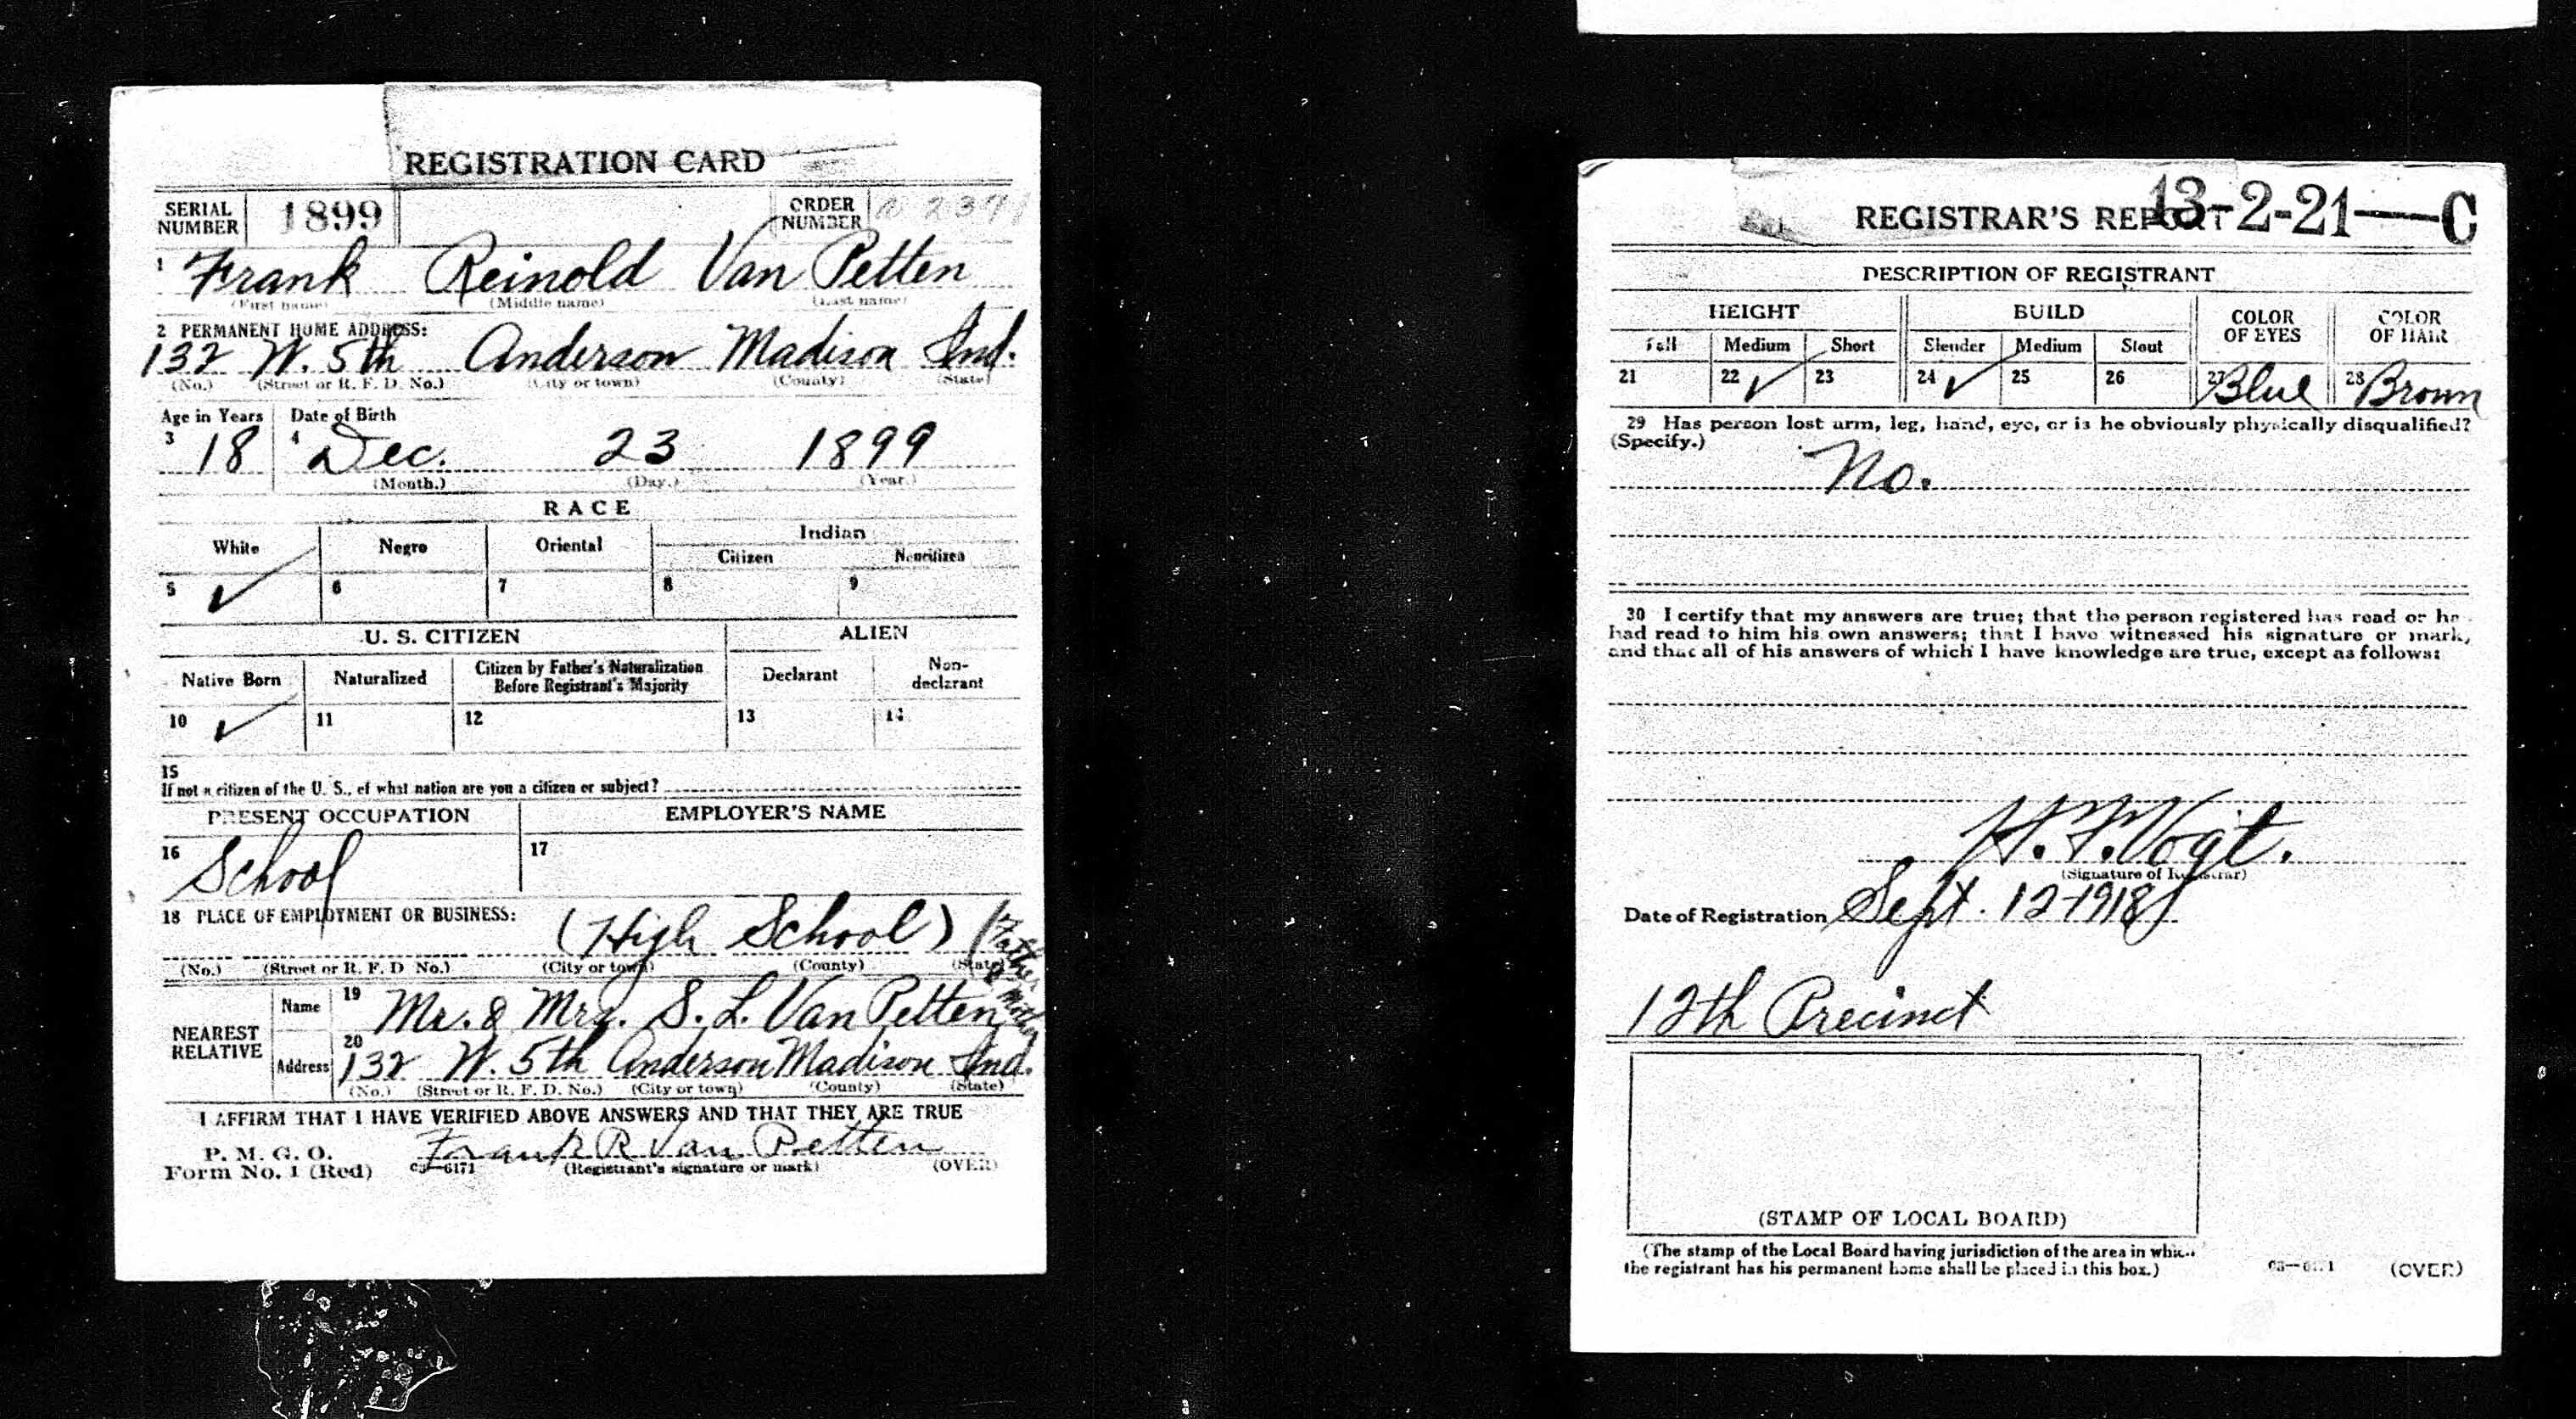 REGISTRATION CARD
SERIAL NUMBER 1899 ORDER NUMBER
1 Frank Reinold Van Petten
(First name) (Middle name) (Last name)
2 PERMANENT HOME ADDRESS:
132 W. 5th Anderson Madison Ind.
(No.) (Street or R. F. D. No.) (City or town) (County) (State)
Age in Years Date of Birth
3 18 4 Dec. 23 1899
(Month.) (Day.) (Year.)
RACE
White Negro Oriental Indian
Citizen Noncitizen
5 ✓ 6 7 8 9
U. S. CITIZEN ALIEN
Native Born Naturalized Citizen by Father's Naturalization Before Registrant's Majority Declarant Non-declarant
10 ✓ 11 12 13 14
15
If not a citizen of the U. S., of what nation are you a citizen or subject?
PRESENT OCCUPATION EMPLOYER'S NAME
16 School 17
18 PLACE OF EMPLOYMENT OR BUSINESS:
(High School) (Father & Mother
(No.) (Street or R. F. D. No.) (City or town) (County) (State)
NEAREST RELATIVE
Name 19 Mr. & Mrs. S. L. Van Petten
Address 20 132 W. 5th Anderson Madison Ind.
(No.) (Street or R. F. D. No.) (City or town) (County) (State)
I AFFIRM THAT I HAVE VERIFIED ABOVE ANSWERS AND THAT THEY ARE TRUE
P. M. G. O. Frank R Van Petten
Form No. 1 (Red) 03—6171 (Registrant's signature or mark) (OVER)
REGISTRAR'S REPORT 13-2-21-C
DESCRIPTION OF REGISTRANT
HEIGHT BUILD COLOR OF EYES COLOR OF HAIR
Tall Medium Short Slender Medium Stout
21 22 ✓ 23 24 ✓ 25 26 27 Blue 28 Brown
29 Has person lost arm, leg, hand, eye, or is he obviously physically disqualified?
(Specify.)
No.
30 I certify that my answers are true; that the person registered has read or has
had read to him his own answers; that I have witnessed his signature or mark,
and that all of his answers of which I have knowledge are true, except as follows:
H. F. Vogt.
(Signature of Registrar)
Date of Registration Sept. 12-1918
12th Precinct
(STAMP OF LOCAL BOARD)
(The stamp of the Local Board having jurisdiction of the area in which
the registrant has his permanent home shall be placed in this box.) 03—6171 (OVER)